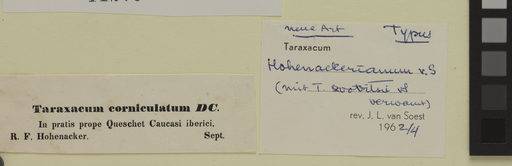 Taraxacum corniculatum DC.
In pratis prope Queschet Caucasi iberici.
R. F. Hohenacker. Sept.
neue Art Typus
Taraxacum
Hohenackerianum v. S
(mit T.
verwant)
rev. J. L. van Soest
1962/4